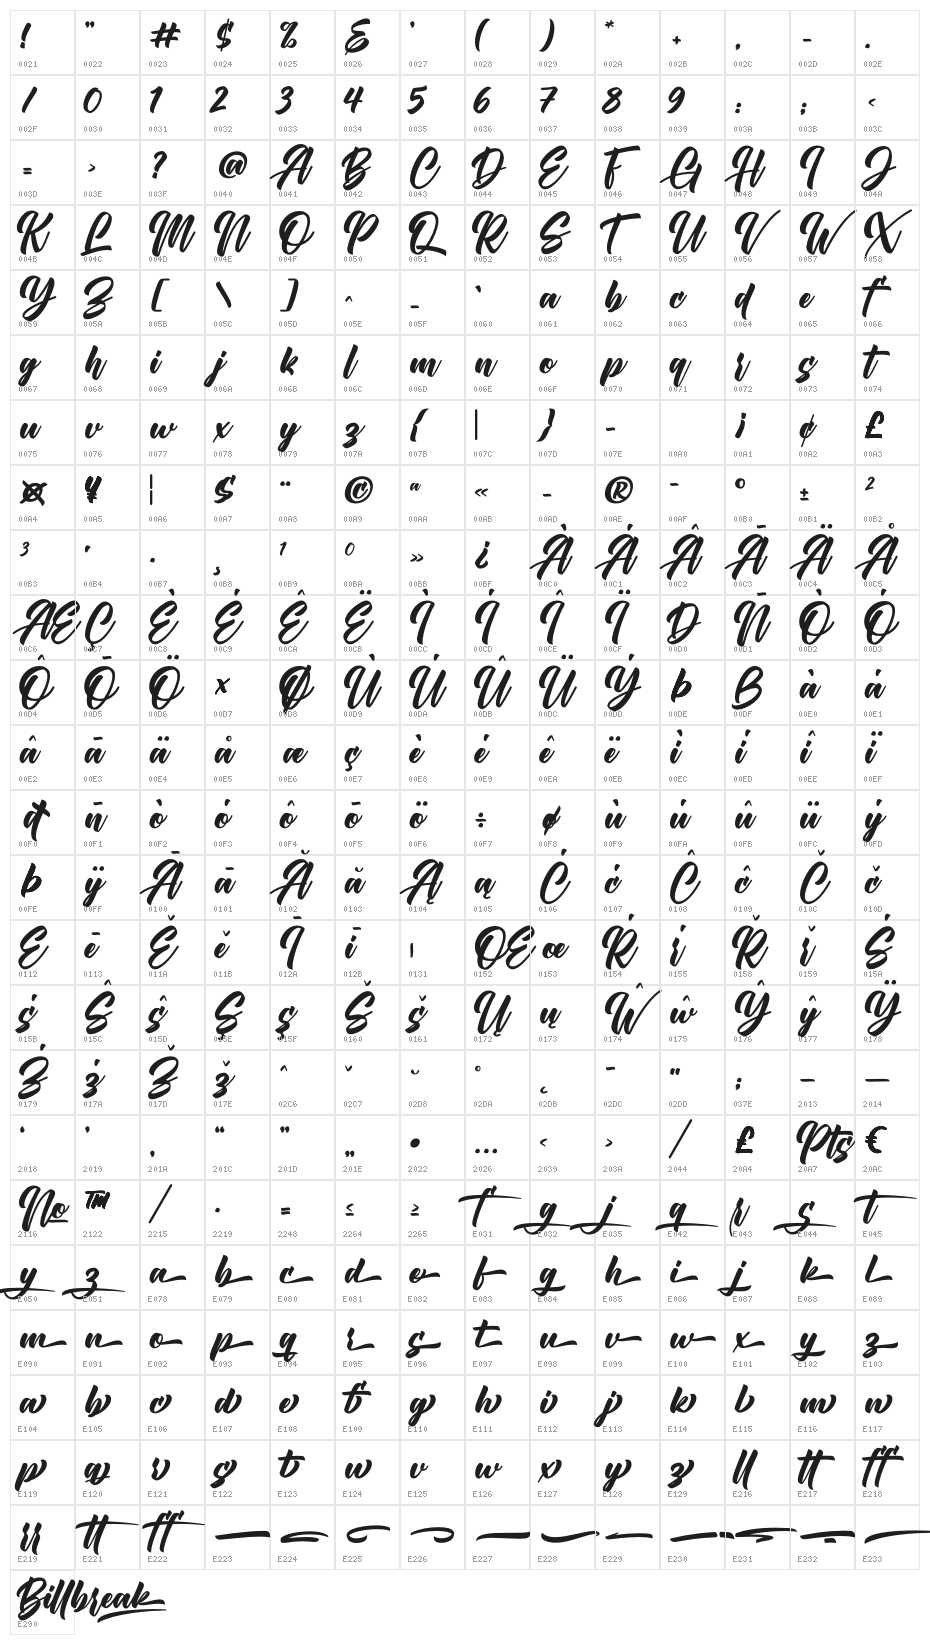 ! " # $ % & ' ( ) * + , - .
0021 0022 0023 0024 0025 0026 0027 0028 0029 002A 002B 002C 002D 002E
/ 0 1 2 3 4 5 6 7 8 9 : ; <
002F 0030 0031 0032 0033 0034 0035 0036 0037 0038 0039 003A 003B 003C
= > ? @ A B C D E F G H I J
003D 003E 003F 0040 0041 0042 0043 0044 0045 0046 0047 0048 0049 004A
K L M N O P Q R S T U V W X
004B 004C 004D 004E 004F 0050 0051 0052 0053 0054 0055 0056 0057 0058
Y Z [ \ ] ^ _ ` a b c d e f
0059 005A 005B 005C 005D 005E 005F 0060 0061 0062 0063 0064 0065 0066
g h i j k l m n o p q r s t
0067 0068 0069 006A 006B 006C 006D 006E 006F 0070 0071 0072 0073 0074
u v w x y z { | } ~ ¡ ¢ £
0075 0076 0077 0078 0079 007A 007B 007C 007D 007E 00A0 00A1 00A2 00A3
¤ ¥ ¦ § ¨ © ª « - ® ¯ ° ± ²
00A4 00A5 00A6 00A7 00A8 00A9 00AA 00AB 00AD 00AE 00AF 00B0 00B1 00B2
³ ´ · ¸ ¹ º » ¿ À Á Â Ã Ä Å
00B3 00B4 00B7 00B8 00B9 00BA 00BB 00BF 00C0 00C1 00C2 00C3 00C4 00C5
Æ Ç È É Ê Ë Ì Í Î Ï D Ñ Ò Ó
00C6 00C7 00C8 00C9 00CA 00CB 00CC 00CD 00CE 00CF 00D0 00D1 00D2 00D3
Ô Õ Ö × Ø Ù Ú Û Ü Ý Þ ß à á
00D4 00D5 00D6 00D7 00D8 00D9 00DA 00DB 00DC 00DD 00DE 00DF 00E0 00E1
â ã ä å æ ç è é ê ë ì í î ï
00E2 00E3 00E4 00E5 00E6 00E7 00E8 00E9 00EA 00EB 00EC 00ED 00EE 00EF
ð ñ ò ó ô õ ö ÷ ø ù ú û ü ý
00F0 00F1 00F2 00F3 00F4 00F5 00F6 00F7 00F8 00F9 00FA 00FB 00FC 00FD
þ ÿ Ā ā Ă ă Ą ą Ć ć Ĉ ĉ Č č
00FE 00FF 0100 0101 0102 0103 0104 0105 0106 0107 0108 0109 010C 010D
E ē Ě ě Ī ī ı Œ œ Ŕ ŕ Ř ř Ś
0112 0113 011A 011B 012A 012B 0131 0152 0153 0154 0155 0158 0159 015A
ś Ŝ ŝ Ş ş Š š Ų ų Ŵ ŵ Ŷ ŷ Ÿ
015B 015C 015D 015E 015F 0160 0161 0172 0173 0174 0175 0176 0177 0178
Ź ź Ž ž ˆ ˇ ˘ ˚ ˛ ˜ ˝ ; – —
0179 017A 017D 017E 02C6 02C7 02D8 02DA 02DB 02DC 02DD 037E 2013 2014
‘ ’ ‚ “ ” „ • … ‹ › ⁄ ₤ Pts €
2018 2019 201A 201C 201D 201E 2022 2026 2039 203A 2044 20A4 20A7 20AC
No ™ ∕ · = ≤ ≥ f g j q r s t
2116 2122 2215 2219 2248 2264 2265 E031 E032 E035 E042 E043 E044 E045
y z a b c d e f g h i j k l
E050 E051 E078 E079 E080 E081 E082 E083 E084 E085 E086 E087 E088 E089
m n o p q r s t u v w x y z
E090 E091 E092 E093 E094 E095 E096 E097 E098 E099 E100 E101 E102 E103
a b c d e f g h i j k l m n
E104 E105 E106 E107 E108 E109 E110 E111 E112 E113 E114 E115 E116 E117
p q r s t u v w x y z ll tt ff
E119 E120 E121 E122 E123 E124 E125 E126 E127 E128 E129 E216 E217 E218
rr tt ff
E219 E221 E222 E223 E224 E225 E226 E227 E228 E229 E230 E231 E232 E233
Billbreak
E290